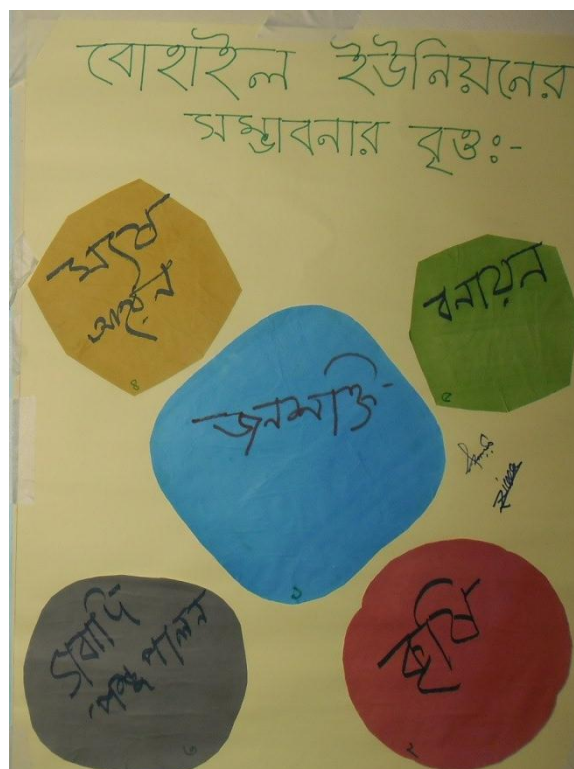 বোহাইল ইউনিয়নের
সম্ভাবনার বৃত্তঃ-
মৎস্য
আহরন
৪
বনায়ন
৫
জনশক্তি
১
গবাদি
পশু পালন
৩
কৃষি
২